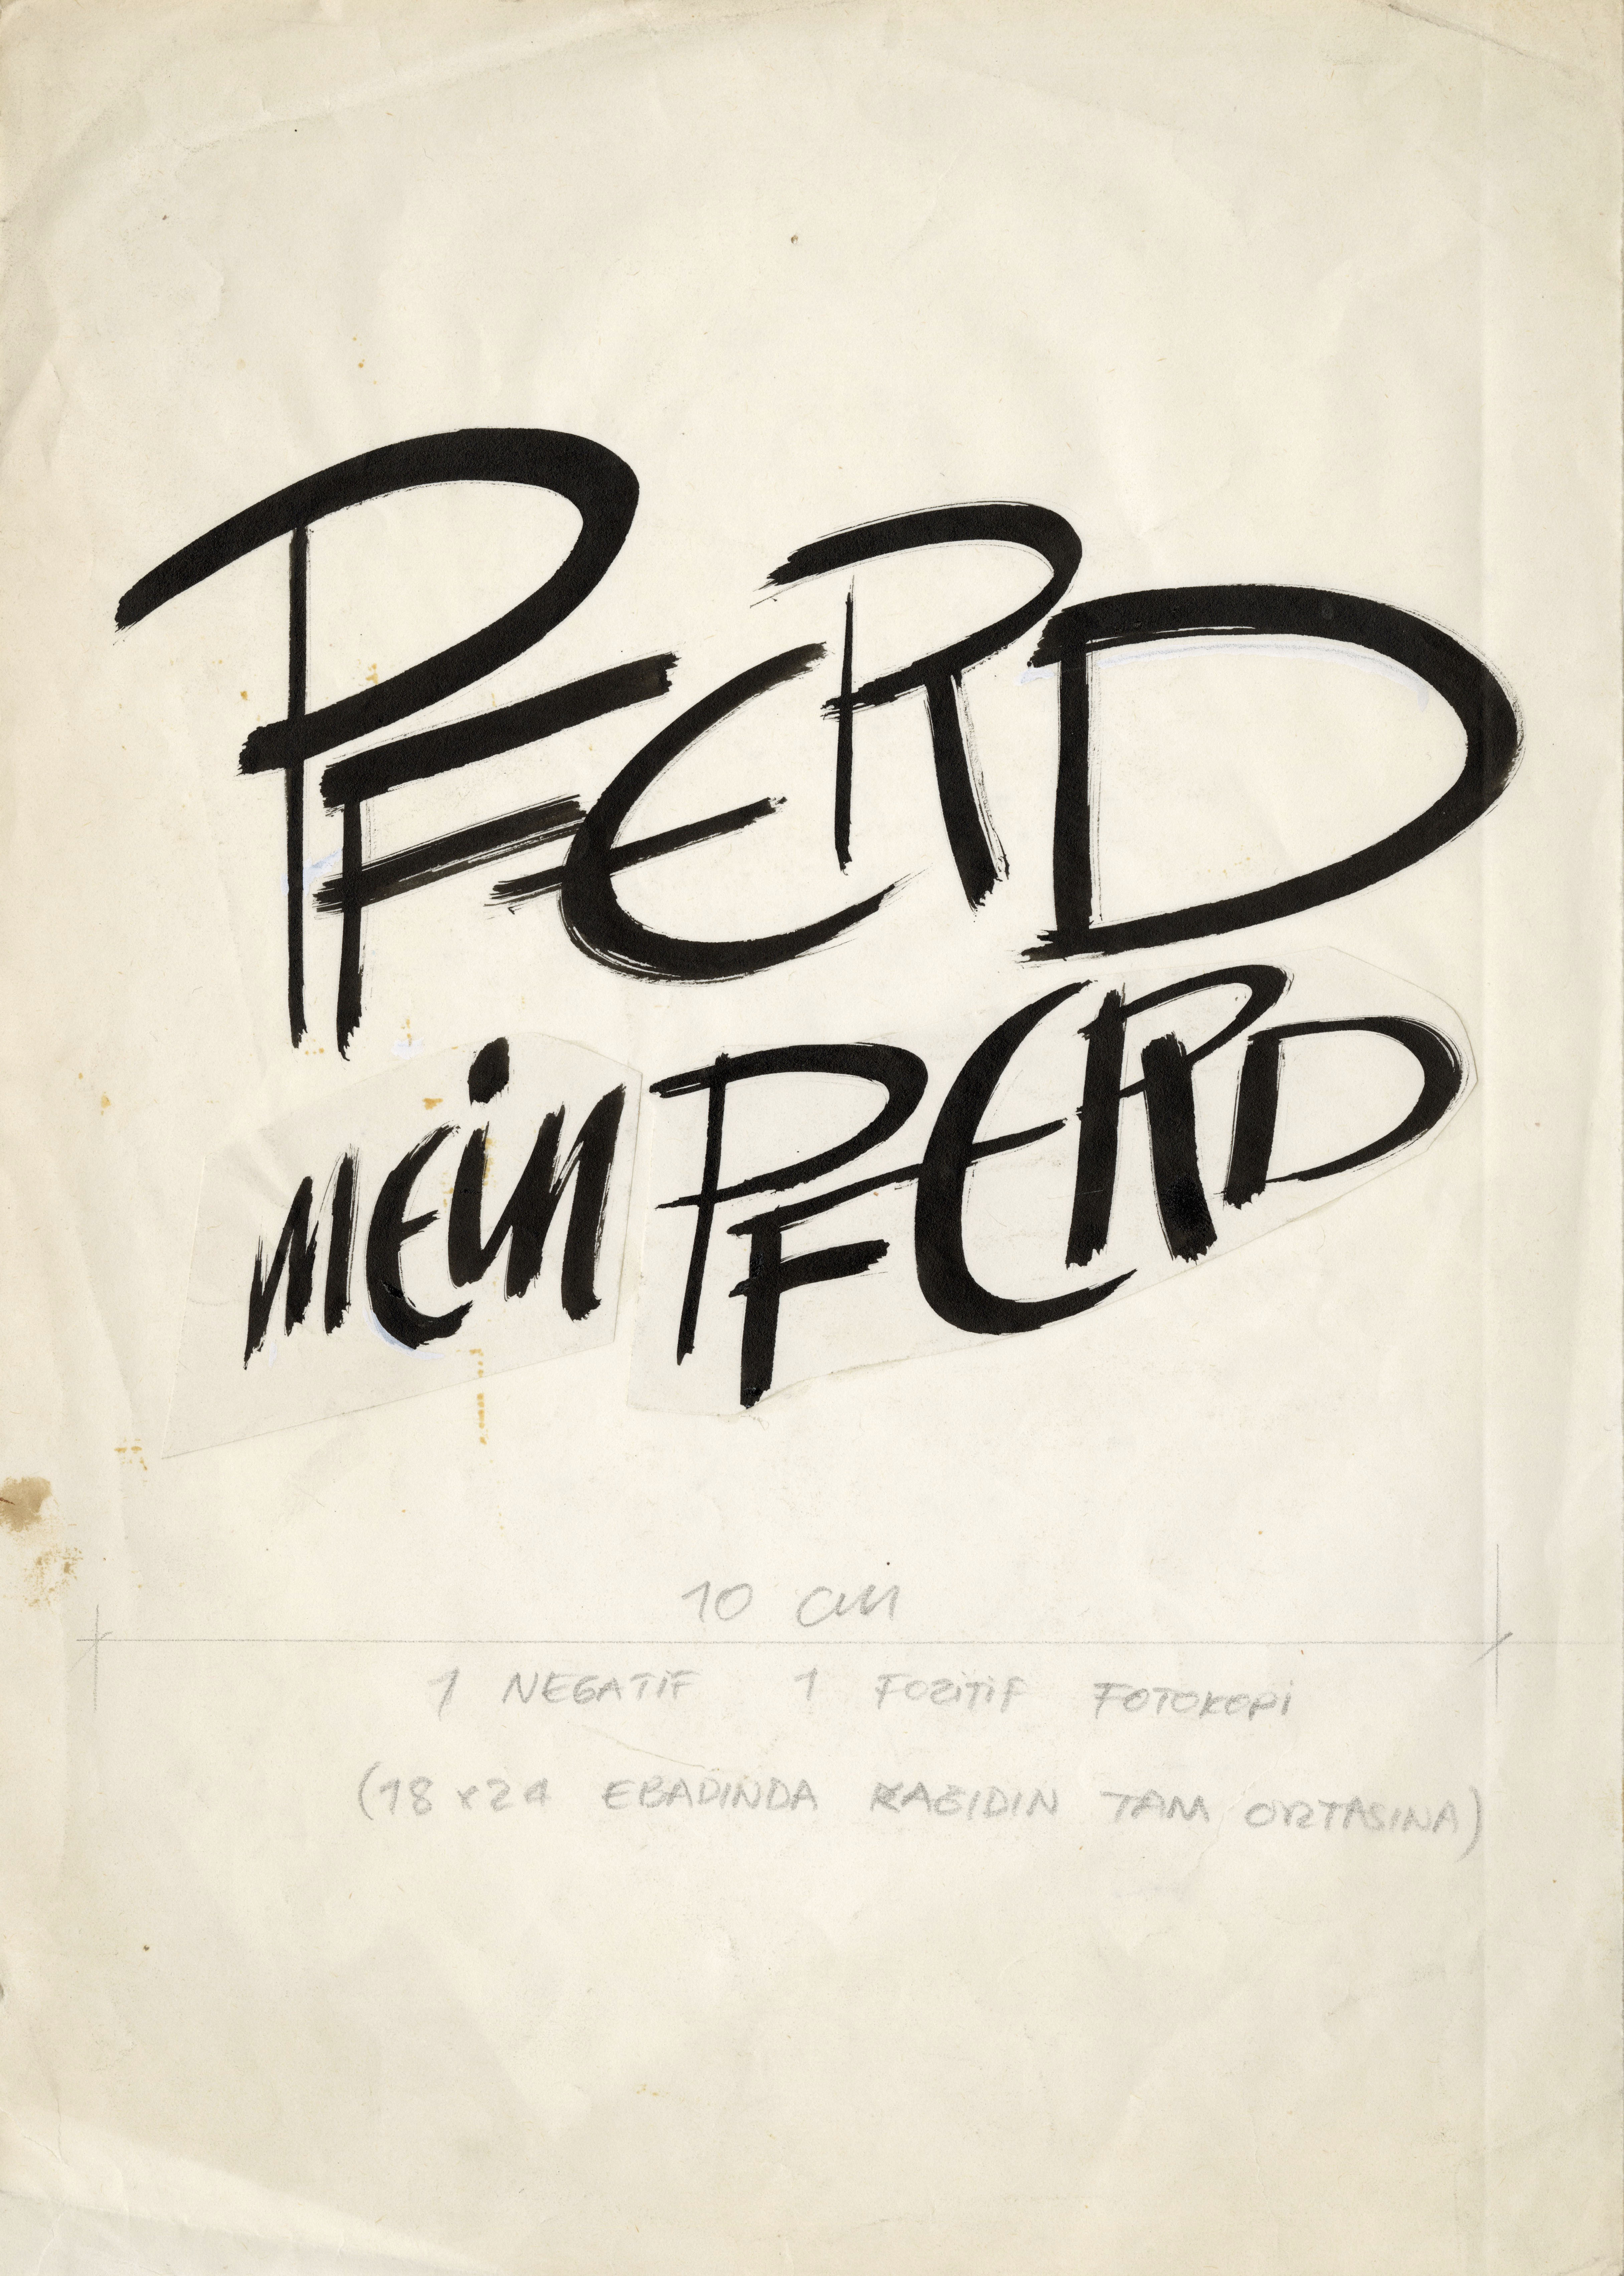 PFERD
MEiN PFERD
10 cm
1 NEGATiF 1 POZiTiF FOTOKOPi
(18x24 EBADINDA KAĞIDIN TAM ORTASINA)